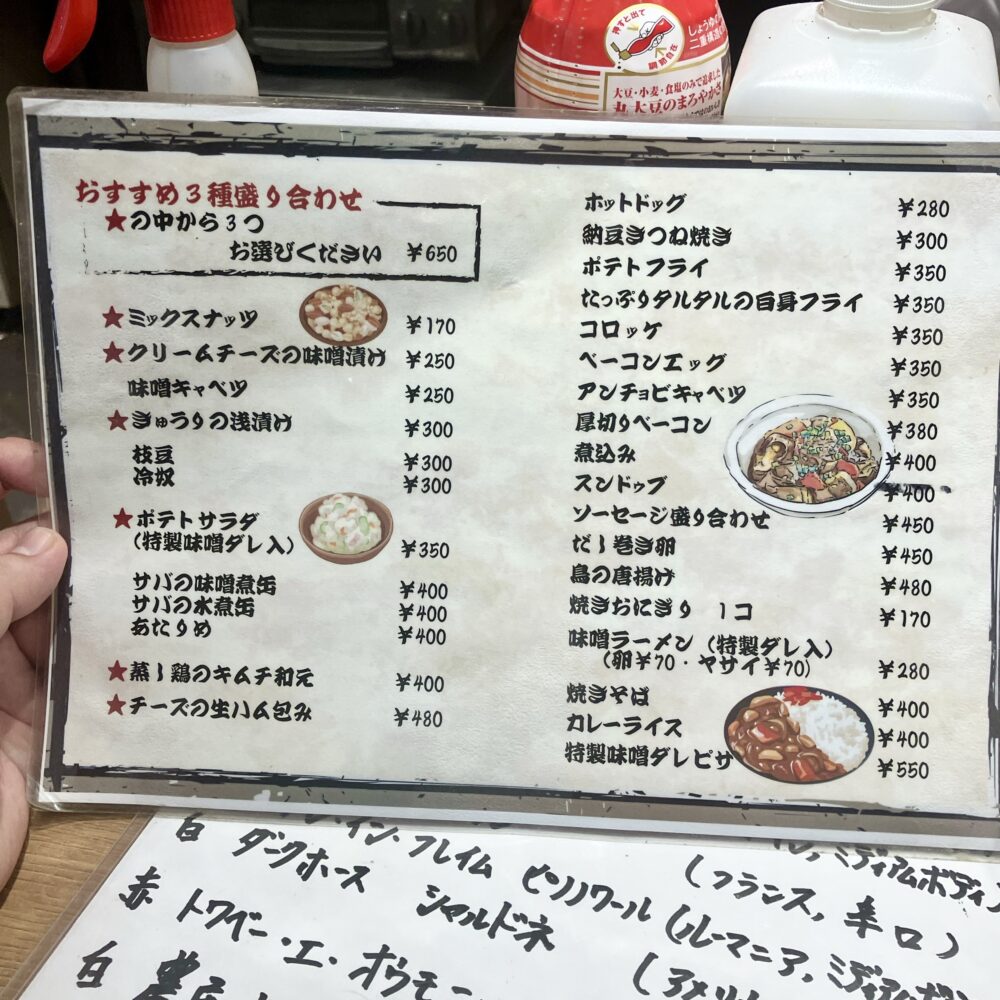 押すと出て
調節自在
しょうゆ
二重構造
大豆・小麦・食塩のみで追求した
丸大豆のまろやかさ
おすすめ3種盛り合わせ
★の中から3つ
お選びください ￥650
★ミックスナッツ ￥170
★クリームチーズの味噌漬け ￥250
味噌キャベツ ￥250
★きゅうりの浅漬け ￥300
枝豆 ￥300
冷奴 ￥300
★ポテトサラダ
(特製味噌ダレ入) ￥350
サバの味噌煮缶 ￥400
サバの水煮缶 ￥400
あたりめ ￥400
★蒸し鶏のキムチ和え ￥400
★チーズの生ハム包み ￥480
ホットドッグ ￥280
納豆きつね焼き ￥300
ポテトフライ ￥350
たっぷりタルタルの白身フライ ￥350
コロッケ ￥350
ベーコンエッグ ￥350
アンチョビキャベツ ￥350
厚切りベーコン ￥380
煮込み ￥400
スンドゥブ ￥400
ソーセージ盛り合わせ ￥450
だし巻き卵 ￥450
鳥の唐揚げ ￥480
焼きおにぎり 1コ ￥170
味噌ラーメン(特製ダレ入)
(卵￥70・ヤサイ￥70) ￥280
焼きそば ￥400
カレーライス ￥400
特製味噌ダレピザ ￥550
イン・フレイム ピノノワール (ルーマニア, ミディアムボディ
白 ダークホース シャルドネ
赤 トワベー・エ・ボウモ
白 農
ミディアムボディ
(フランス, 辛口)
(アメリ